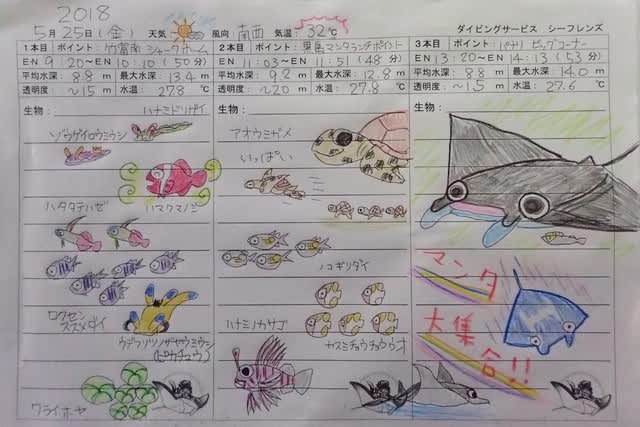 2018
5月25日(金) 天気 風向 南西 気温: 32℃ ダイビングサービス シーフレンズ
1本目 ポイント: 竹富南シャークホーム
EN 9:20〜EN 10:10 (50分)
平均水深: 8.8 m 最大水深: 13.4 m
透明度: 〜15 m 水温: 27.8 ℃
生物: ハナミドリガイ
ゾウゲイロウミウシ
ハタタテハゼ ハマクマノミ
ロクセンスズメダイ
ウデフリツノザヤウミウシ
(ピカチュウ)
ワライボヤ
2本目 ポイント: 黒島マンタランチポイント
EN 11:03〜EN 11:51 (48分)
平均水深: 9.2 m 最大水深: 12.8 m
透明度: 〜20 m 水温: 27.8 ℃
生物:
アオウミガメ
いっぱい
ノコギリダイ
ハナミノカサゴ
カスミチョウチョウウオ
3本目 ポイント: パナリ ビッグコーナー
EN 13:20〜EN 14:13 (53分)
平均水深: 8.8 m 最大水深: 14.0 m
透明度: 〜15 m 水温: 27.6 ℃
生物:
マンタ
大集合!!